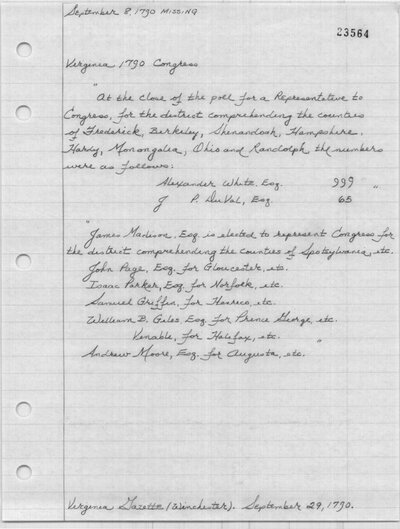 September 8, 1790 MISSING
23564
Virginia 1790 Congress
"At the close of the poll for a Representative to
Congress, for the district comprehending the counties
of Frederick, Berkeley, Shenandoah, Hampshire,
Hardy, Monongalia, Ohio and Randolph the numbers
were as follows:
Alexander White, Esq. 999 "
J P. DuVal, Esq 65
"James Madison, Esq is elected to represent Congress for
the district comprehending the counties of Spotsylvania, etc.
John Page, Esq. for Gloucester, etc.
Isaac Parker, Esq for Norfolk, etc.
Samuel Griffin, for Henrico, etc.
William B. Giles Esq for Prince George, etc.
Venable, for Halifax, etc.
Andrew Moore, Esq. for Augusta, etc. "
Virginia Gazette (Winchester). September 29, 1790.